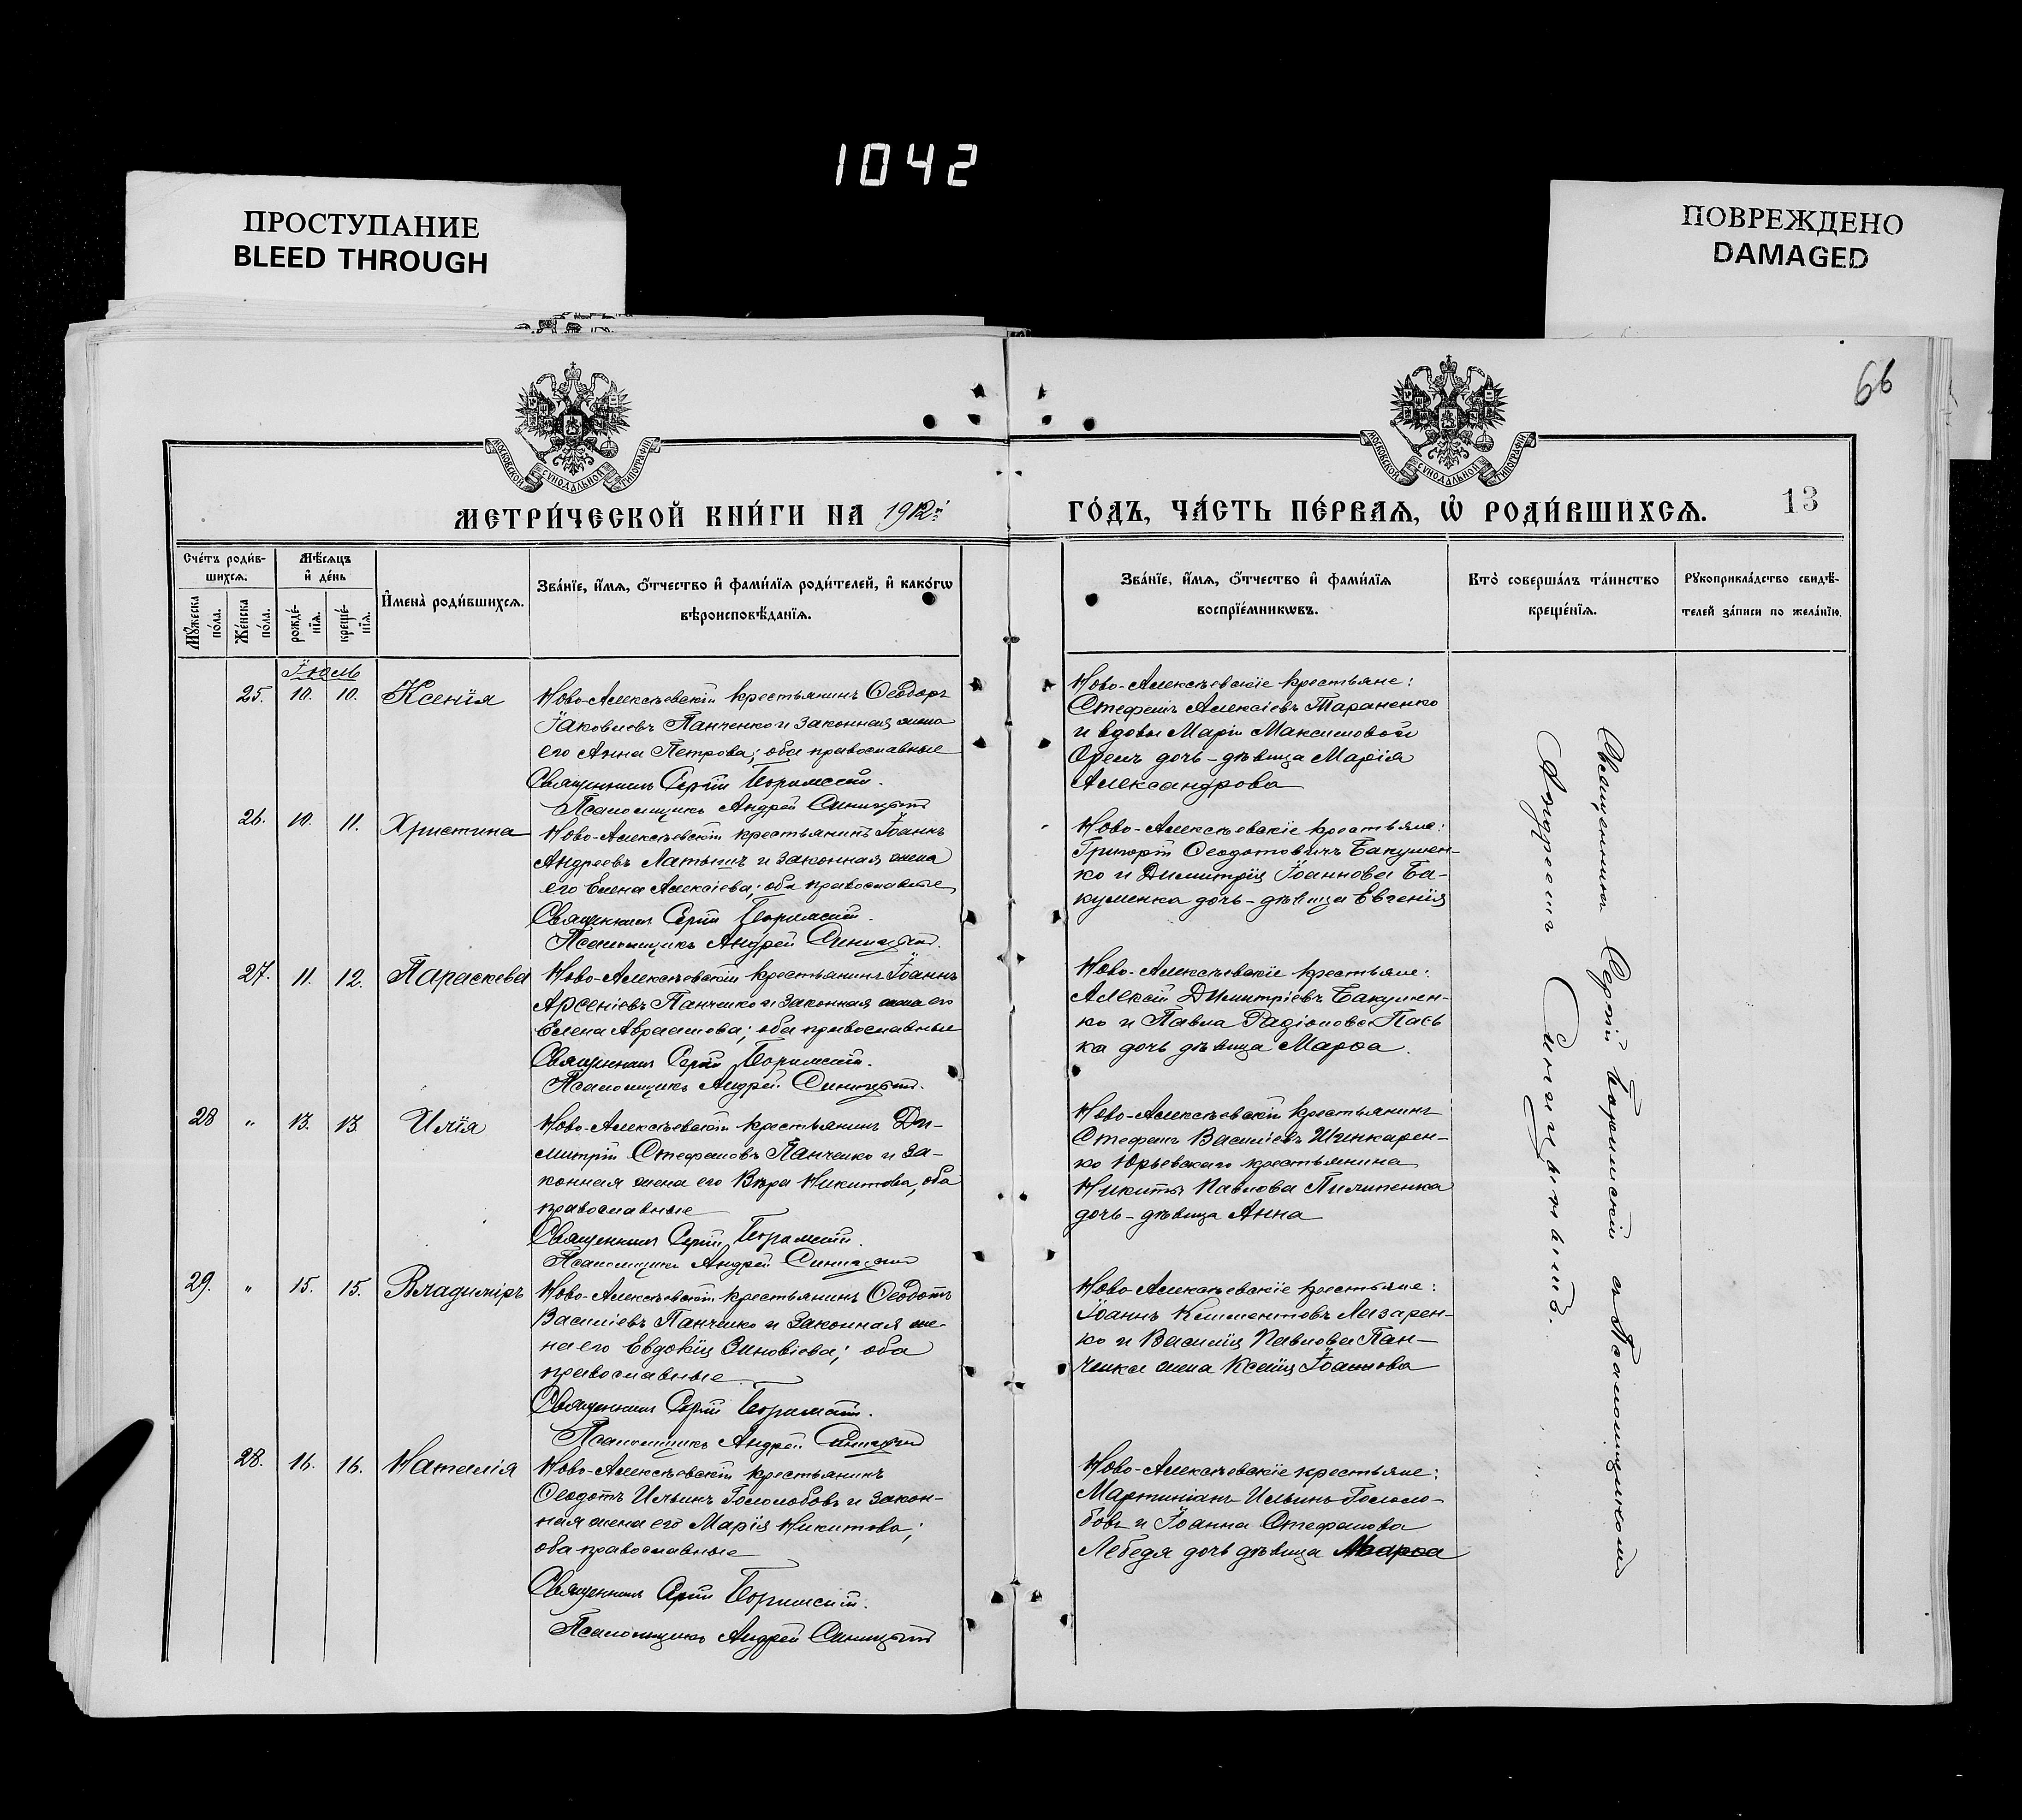 1042
ПРОСТУПАНИЕ
BLEED THROUGH
ПОВРЕЖДЕНО
DAMAGED
66
МОСКОВСКОЙ СѴНОДАЛЬНОЙ ТИПОГРАФІИ
МОСКОВСКОЙ СѴНОДАЛЬНОЙ ТИПОГРАФІИ
МЕТРИ́ЧЕСКОЙ КНИ́ГИ НА 1912й
ГО́ДЪ, ЧА́СТЬ ПЕ́РВАѦ, Ѡ҆ РОДИ́ВШИХСѦ.
13
Сче́тъ роди́в-
шихсѧ.
Мꙋ́жеска по́ла.
Же́нска по́ла.
Мѣ́сѧцъ
и҆ де́нь
рожде́-
нїѧ.
креще́-
нїѧ.
И҆мена̀ роди́вшихсѧ.
Зва́нїе, и҆́мѧ, ѻ҆́тчество и҆ фами́лїѧ роди́телей, и҆ како́гѡ
вѣроисповѣ́данїѧ.
Зва́нїе, и҆́мѧ, ѻ҆́тчество и҆ фами́лїѧ
воспрїе́мникѡвъ.
Кто̀ соверша́лъ та́инство
креще́нїѧ.
Рꙋкоприкла́дство свидѣ́-
телей за́писи по жела́нїю.
Іюль
25. 10. 10. Ксенія
Ново-Алексѣевскій крестьянинъ Ѳеодоръ
Іаковлевъ Панченко и законная жена
его Анна Петрова; оба православные
Священникъ Сергій Боримскій.
Псаломщикъ Андрей Синицкій
Ново-Алексѣевскіе крестьяне:
Стефанъ Алексіевъ Тараненко
и вдовы Маріи Максимовой
дочь-дѣвица Марія
Александрова
26. 10. 11. Христина
Ново-Алексѣевскій крестьянинъ Іоаннъ
Андреевъ Латышъ и законная жена
его Елена Алексіева; оба православные
Священникъ Сергій Боримскій.
Псаломщикъ Андрей Синицкій.
Ново-Алексѣевскіе крестьяне:
Григорій Ѳеодотовичъ Бакумен-
ко и Димитрія Іоаннова Ба-
куменка дочь-дѣвица Евгенія
27. 11. 12. Параскева
Ново-Алексѣевскій крестьянинъ Іоаннъ
Арсеніевъ Панченко и законная жена его
Елена Авраамова; оба православные
Священникъ Сергій Боримскій.
Псаломщикъ Андрей Синицкій.
Ново-Алексѣевскіе крестьяне:
Алексій Димитріевъ Бакумен-
ко и Павла Радіонова Пась
ка дочь дѣвица Марѳа.
28 " 13. 13. Илія
Ново-Алексѣевскій крестьянинъ Ди-
митрій Стефановъ Панченко и за-
конная жена его Вѣра Никитова, оба
православные
Священникъ Сергій Боримскій.
Псаломщикъ Андрей Синицкій
Ново-Алексѣевскій крестьянинъ
Стефанъ Василіевъ Шинкарен-
ко Юрьевскаго крестьянина
Никиты Павлова Пилипенка
дочь-дѣвица Анна
29. " 15. 15. Владиміръ
Ново-Алексѣевскій крестьянинъ Ѳеодотъ
Василіевъ Панченко и законная же-
на его Евдокія Зиновіева; оба
православные
Священникъ Сергій Боримскій.
Псаломщикъ Андрей Синицкій
Ново-Алексѣевскіе крестьяне:
Іоаннъ Климентовъ Лазарен-
ко и Василія Павлова Пан-
ченка жена Ксенія Іоаннова
28. 16. 16. Наталія
Ново-Алексѣевскій крестьянинъ
Ѳеодотъ Ильинъ Гололобовъ и закон-
ная жена его Марія Никитова;
оба православные
Священникъ Сергій Боримскій.
Псаломщикъ Андрей Синицкій
Ново-Алексѣевскіе крестьяне:
Мартиніанъ Ильинъ Гололо-
бовъ и Іоанна Стефанова
Лебедя дочь дѣвица Марѳа
Священникъ Сергій Боримскій съ Псаломщикомъ
Андреемъ Синицкимъ.